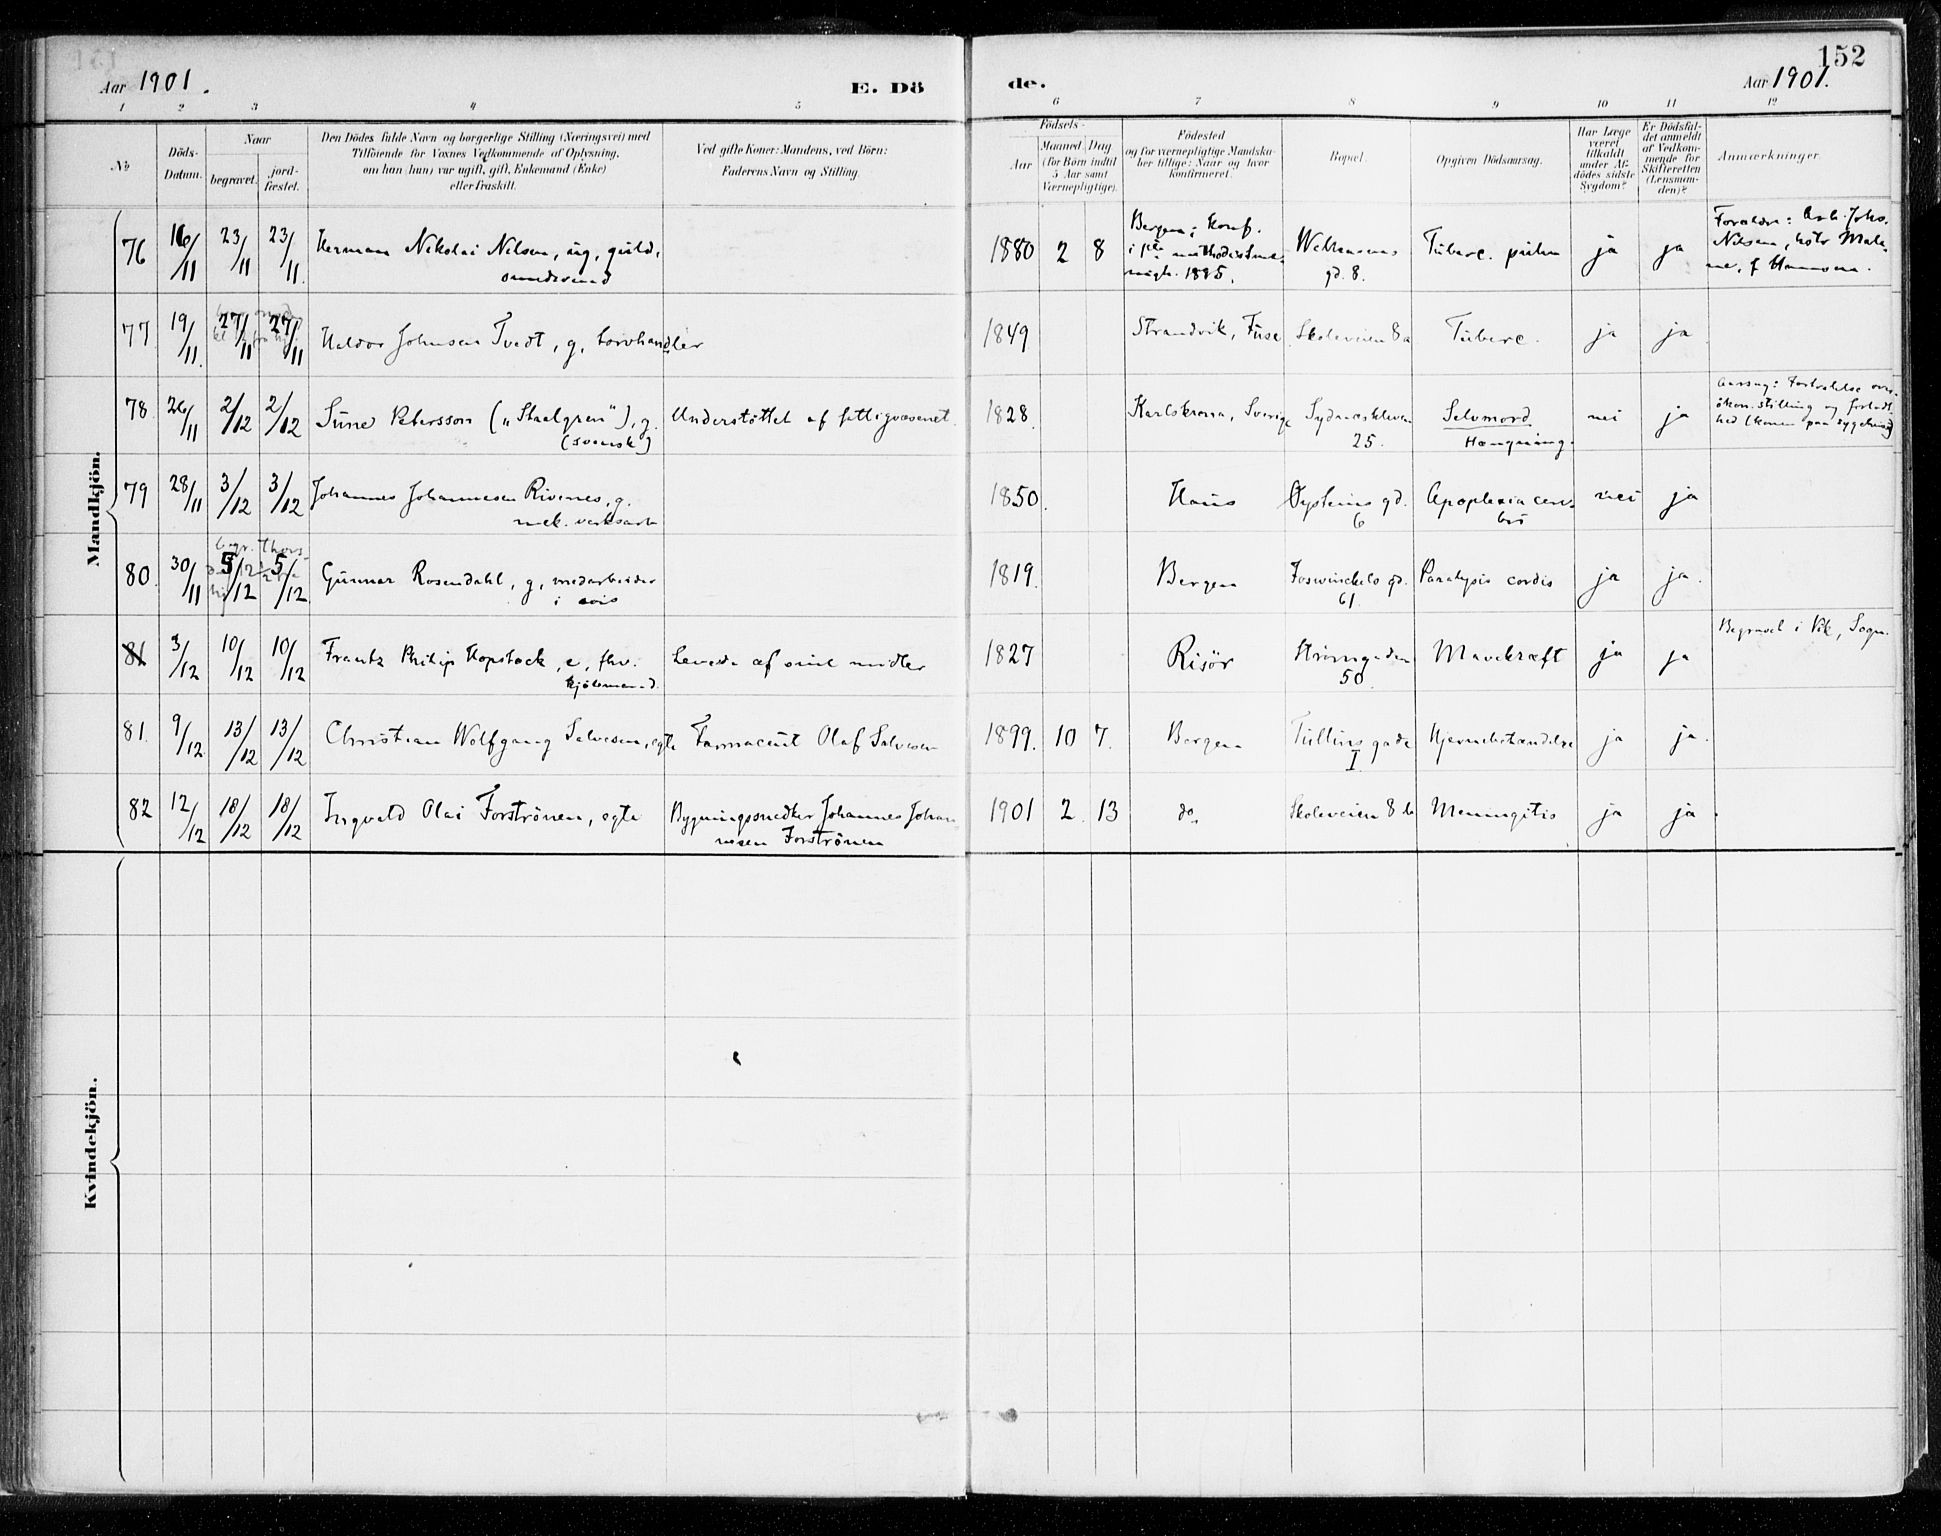 152
Aar 1901.
E. Dö
de.
Aar 1901.
1 2 3 4 5
6 7 8 9 10 11 12
№
Döds-
Datum.
Naar
begravet.
jord-
fæstet.
Den Dödes fulde Navn og borgerlige Stilling (Næringsvei) med
Tilföiende for Voxnes Vedkommende af Oplysning,
om han (hun) var ugift, gift, Enkemand (Enke)
eller fraskilt.
Ved gifte Koner: Mandens, ved Börn:
Faderens Navn og Stilling.
Födsels-
Aar
Maaned Dag
(for Börn indtil
5 Aar samt
Værnepligtige).
Födested
og for værnepligtige Mandska-
ber tillige: Naar og hvor
konfirmeret.
Bopæl.
Opgiven Dödsaarsag.
Har Læge
været
tilkaldt
under Af-
dödes sidste
Sygdom?
Er Dödsfal-
det anmeldt
af Vedkom-
mende for
Skifteretten
(Lensman-
den)?
Anmærkninger.
Mandkjön.
76 16/11 23/11 23/11 Herman Nikolai Nilsen, ug, guld-
smedsvend
1880 2 8
Bergen; konf.
i 1ste methodistme-
nigh. 1895.
Welhavens
gd. 8.
Tuberc. pulm
ja ja
Forældre: Arb. Johs.
Nilsen, hstr Male-
ne, f Hannsen.
77 19/11 27/11 27/11 Haldor Johnsen Tvedt, g, torvhandler
1849 Strandvik, Fuse Skoleveien 8a Tuberc. ja ja
78 26/11 2/12 2/12 Sune Petersson („Staalgren"), g.
(svensk)
Understöttet af fattigvæsenet.
1828. Karlskrona, Sverige Sydnæskleven
25.
Selvmord
Hængning.
nei ja
Aarsag: Fortvilelse over
ökon. stilling og forladt-
hed (konen paa sygehus)
79 28/11 3/12 3/12 Johannes Johannesen Rivenes, g.
mek. verksarb
1850. Haus Øysteins gd.
6
Apoplexia cere-
bri
nei ja
80. 30/11 5/12 5/12 Gunnar Rosendahl, g, medarbeider
i avis
1819. Bergen Foswinckels gd.
61.
Paralysis cordis ja ja.
81 3/12 10/12 10/12 Frantz Philip Hopstock, e, fhv.
kjöbmand.
Levede af sine midler
1827 Risör Strömgaden
50.
Mavekræft ja ja
Begravet i Vik, Sogn.
81. 9/12 13/12 13/12 Christian Wolfgang Salvesen, egte Farmaceut Olaf Salvesen
1899. 10 7. Bergen Tullins gade
I
Hjernebetændelse ja ja.
82 12/12 18/12 18/12 Ingvald Olai Forströnen, egte Bygningssnedker Johannes Johan-
nesen Forströnen
1901 2 13 do, Skoleveien 8 b Meningitis ja ja.
Kvindekjön.